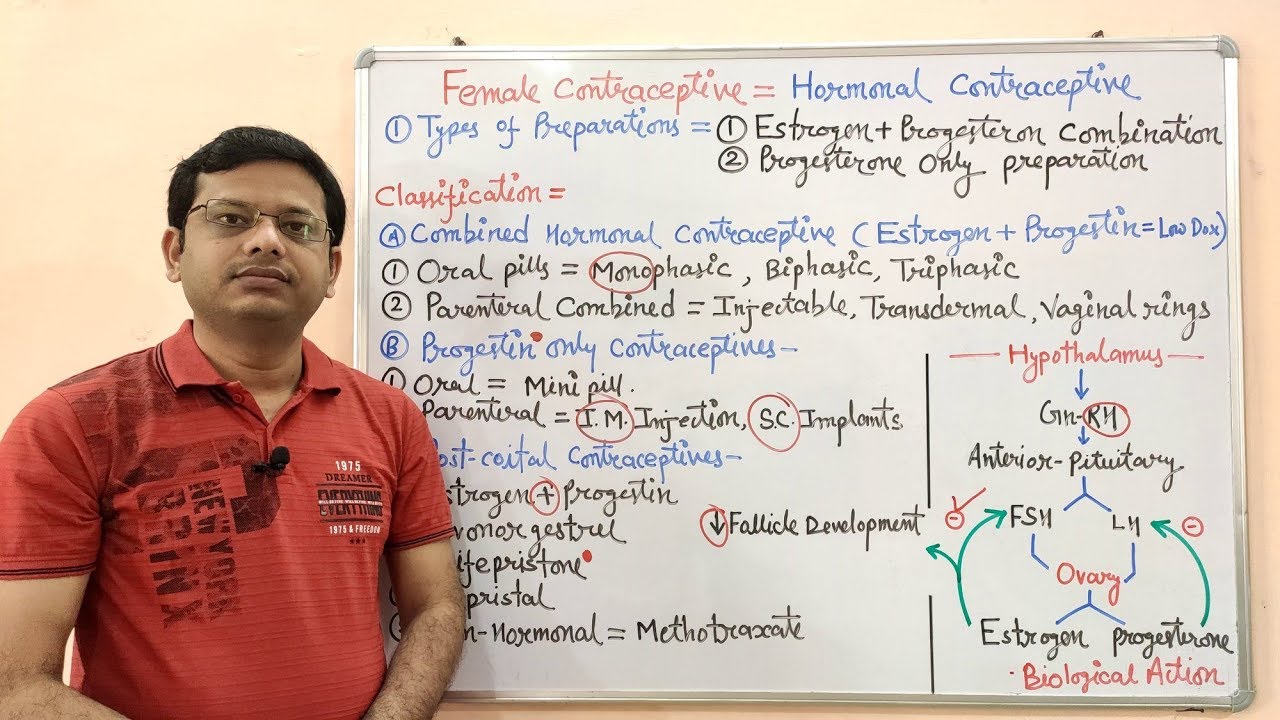 Female Contraceptive = Hormonal Contraceptive
① Types of Preparations = ① Estrogen + Progesteron Combination
② Progesterone Only preparation
Classification =
Ⓐ Combined Hormonal Contraceptive (Estrogen + Progestin = Low Dox)
① Oral pills = Monophasic, Biphasic, Triphasic
② Parenteral Combined = Injectable, Transdermal, Vaginal rings
Ⓑ Progestin only Contraceptives -
① Oral = Mini pill.
Parenteral = I.M. Injection, S.C. Implants
ost-coital Contraceptives -
strogen + Progestin
vonorgestrel
ifepristone
pristal
n-Hormonal = Methotraxate
↓ Fallicle Development
Hypothalamus
Gn-RH
Anterior-Pituitary
⊖ FSH LH ⊖
Ovary
Estrogen progesterone
Biological Action
1975
DREAMER
EVERYTHING
1975 & FREEDOM